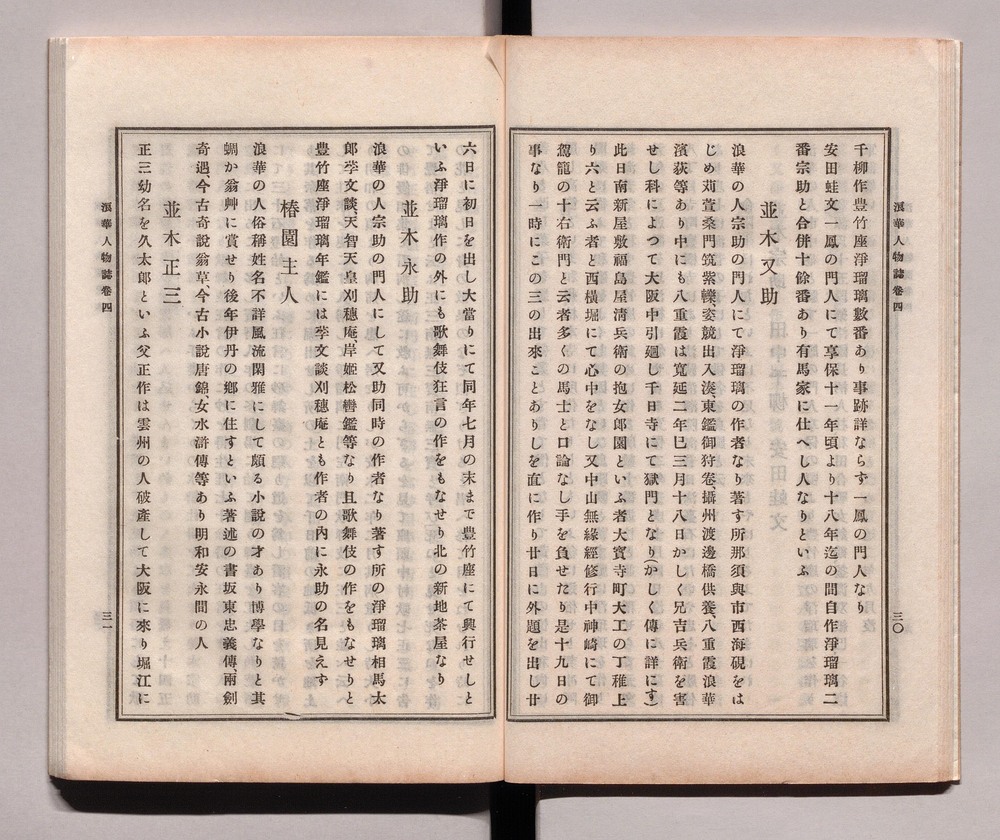 浪華人物誌卷四
三〇
千柳作豊竹座淨瑠璃數番あり事跡詳ならす一鳳の門人なり
安田蛙文一鳳の門人にて享保十一年頃より十八年迄の間自作淨瑠璃二
番宗助と合併十餘番あり有馬家に仕へし人なりといふ
並木又助
浪華の人宗助の門人にて淨瑠璃の作者なり著す所那須與市西海硯をは
じめ苅萱桑門筑紫轢、姿競出入湊、東鑑御狩卷、攝州渡邊橋供養八重霞浪華
濱荻等あり中にも八重霞は寬延二年巳三月十八日かしく兄吉兵衛を害
せし科によつて大阪中引廻し千日寺にて獄門となり(かしく傳に詳にす)
此日南新屋敷福島屋淸兵衛の抱女郎園といふ者大寳寺町大工の丁稚上
り六と云ふ者と西橫堀にて心中をなし又中山無緣經修行中神崎にて御
駕籠の十右衛門と云者多くの馬士と口論なし手を負せたり是十九日の
事なり一時にこの三の出來ことありしを直に作り廿日に外題を出し廿
六日に初日を出し大當りにて同年七月の末まで豊竹座にて興行せしと
いふ淨瑠璃作の外にも歌舞伎狂言の作をもなせり北の新地茶屋なり
並木永助
浪華の人宗助の門人にして又助同時の作者なり著す所の淨瑠璃相馬太
郎孛文談、天智天皇刈穗庵、岸姬松轡鑑等なり且歌舞伎の作をもなせりと
豊竹座淨瑠璃年鑑には孛文談刈穗庵とも作者の內に永助の名見えす
椿園主人
浪華の人俗稱姓名不詳風流閑雅にして頗る小說の才あり博學なりと其
蜩か翁艸に賞せり後年伊丹の鄕に住すといふ著述の書坂東忠義傳、兩劍
奇遇、今古奇說翁草、今古小說唐錦、女水滸傳等あり明和安永間の人
並木正三
正三幼名を久太郎といふ父正作は雲州の人破產して大阪に來り堀江に
浪華人物誌卷四
三一